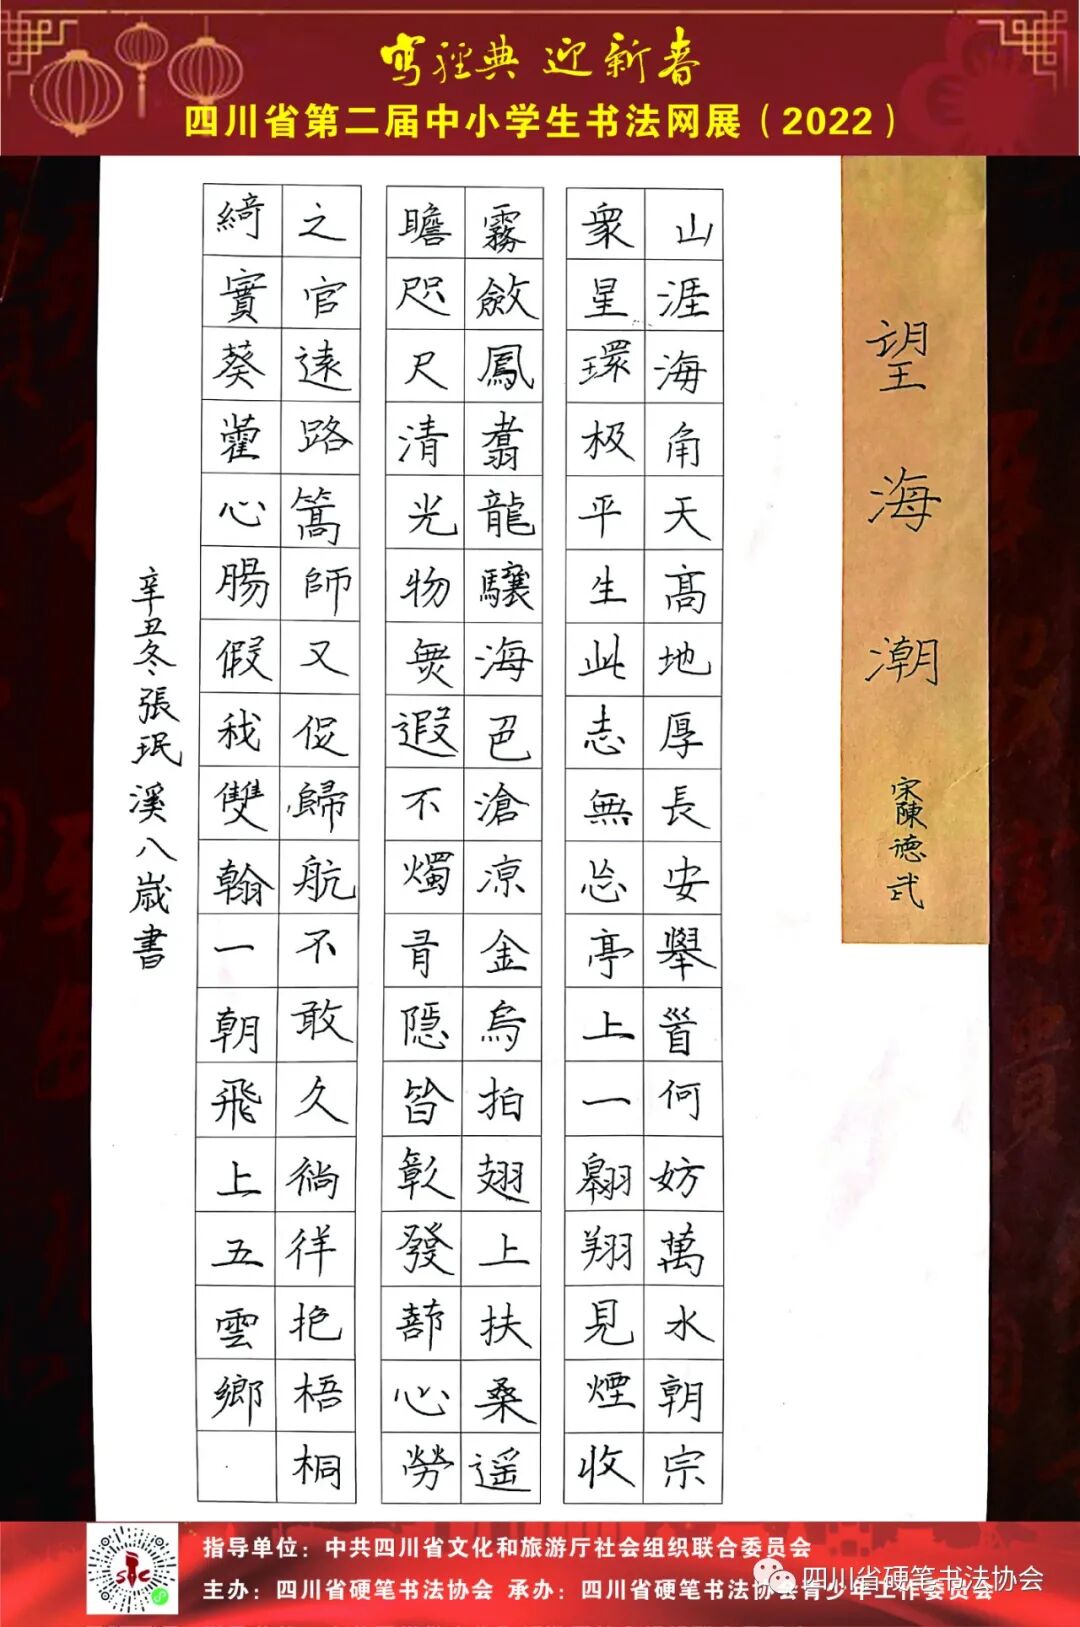 写经典 迎新春
四川省第二届中小学生书法网展（2022）
望海潮
宋陳德武
山涯海角天高地厚長安舉首何妨萬水朝宗
衆星環极平生此志無忘亭上一翱翔見煙收
霧斂鳳翥龍驤海邑滄涼金烏拍翅上扶桑遥
瞻咫尺清光物無遐不燭有隱皆彰發蔀心勞
之官遠路篙師又促歸航不敢久徜徉抱梧桐
綺實葵藿心腸假我雙翰一朝飛上五雲鄉
辛丑冬張珉溪八歲書
指导单位：中共四川省文化和旅游厅社会组织联合委员会
主办：四川省硬笔书法协会 承办：四川省硬笔书法协会青少年工作委员会
四川省硬笔书法协会